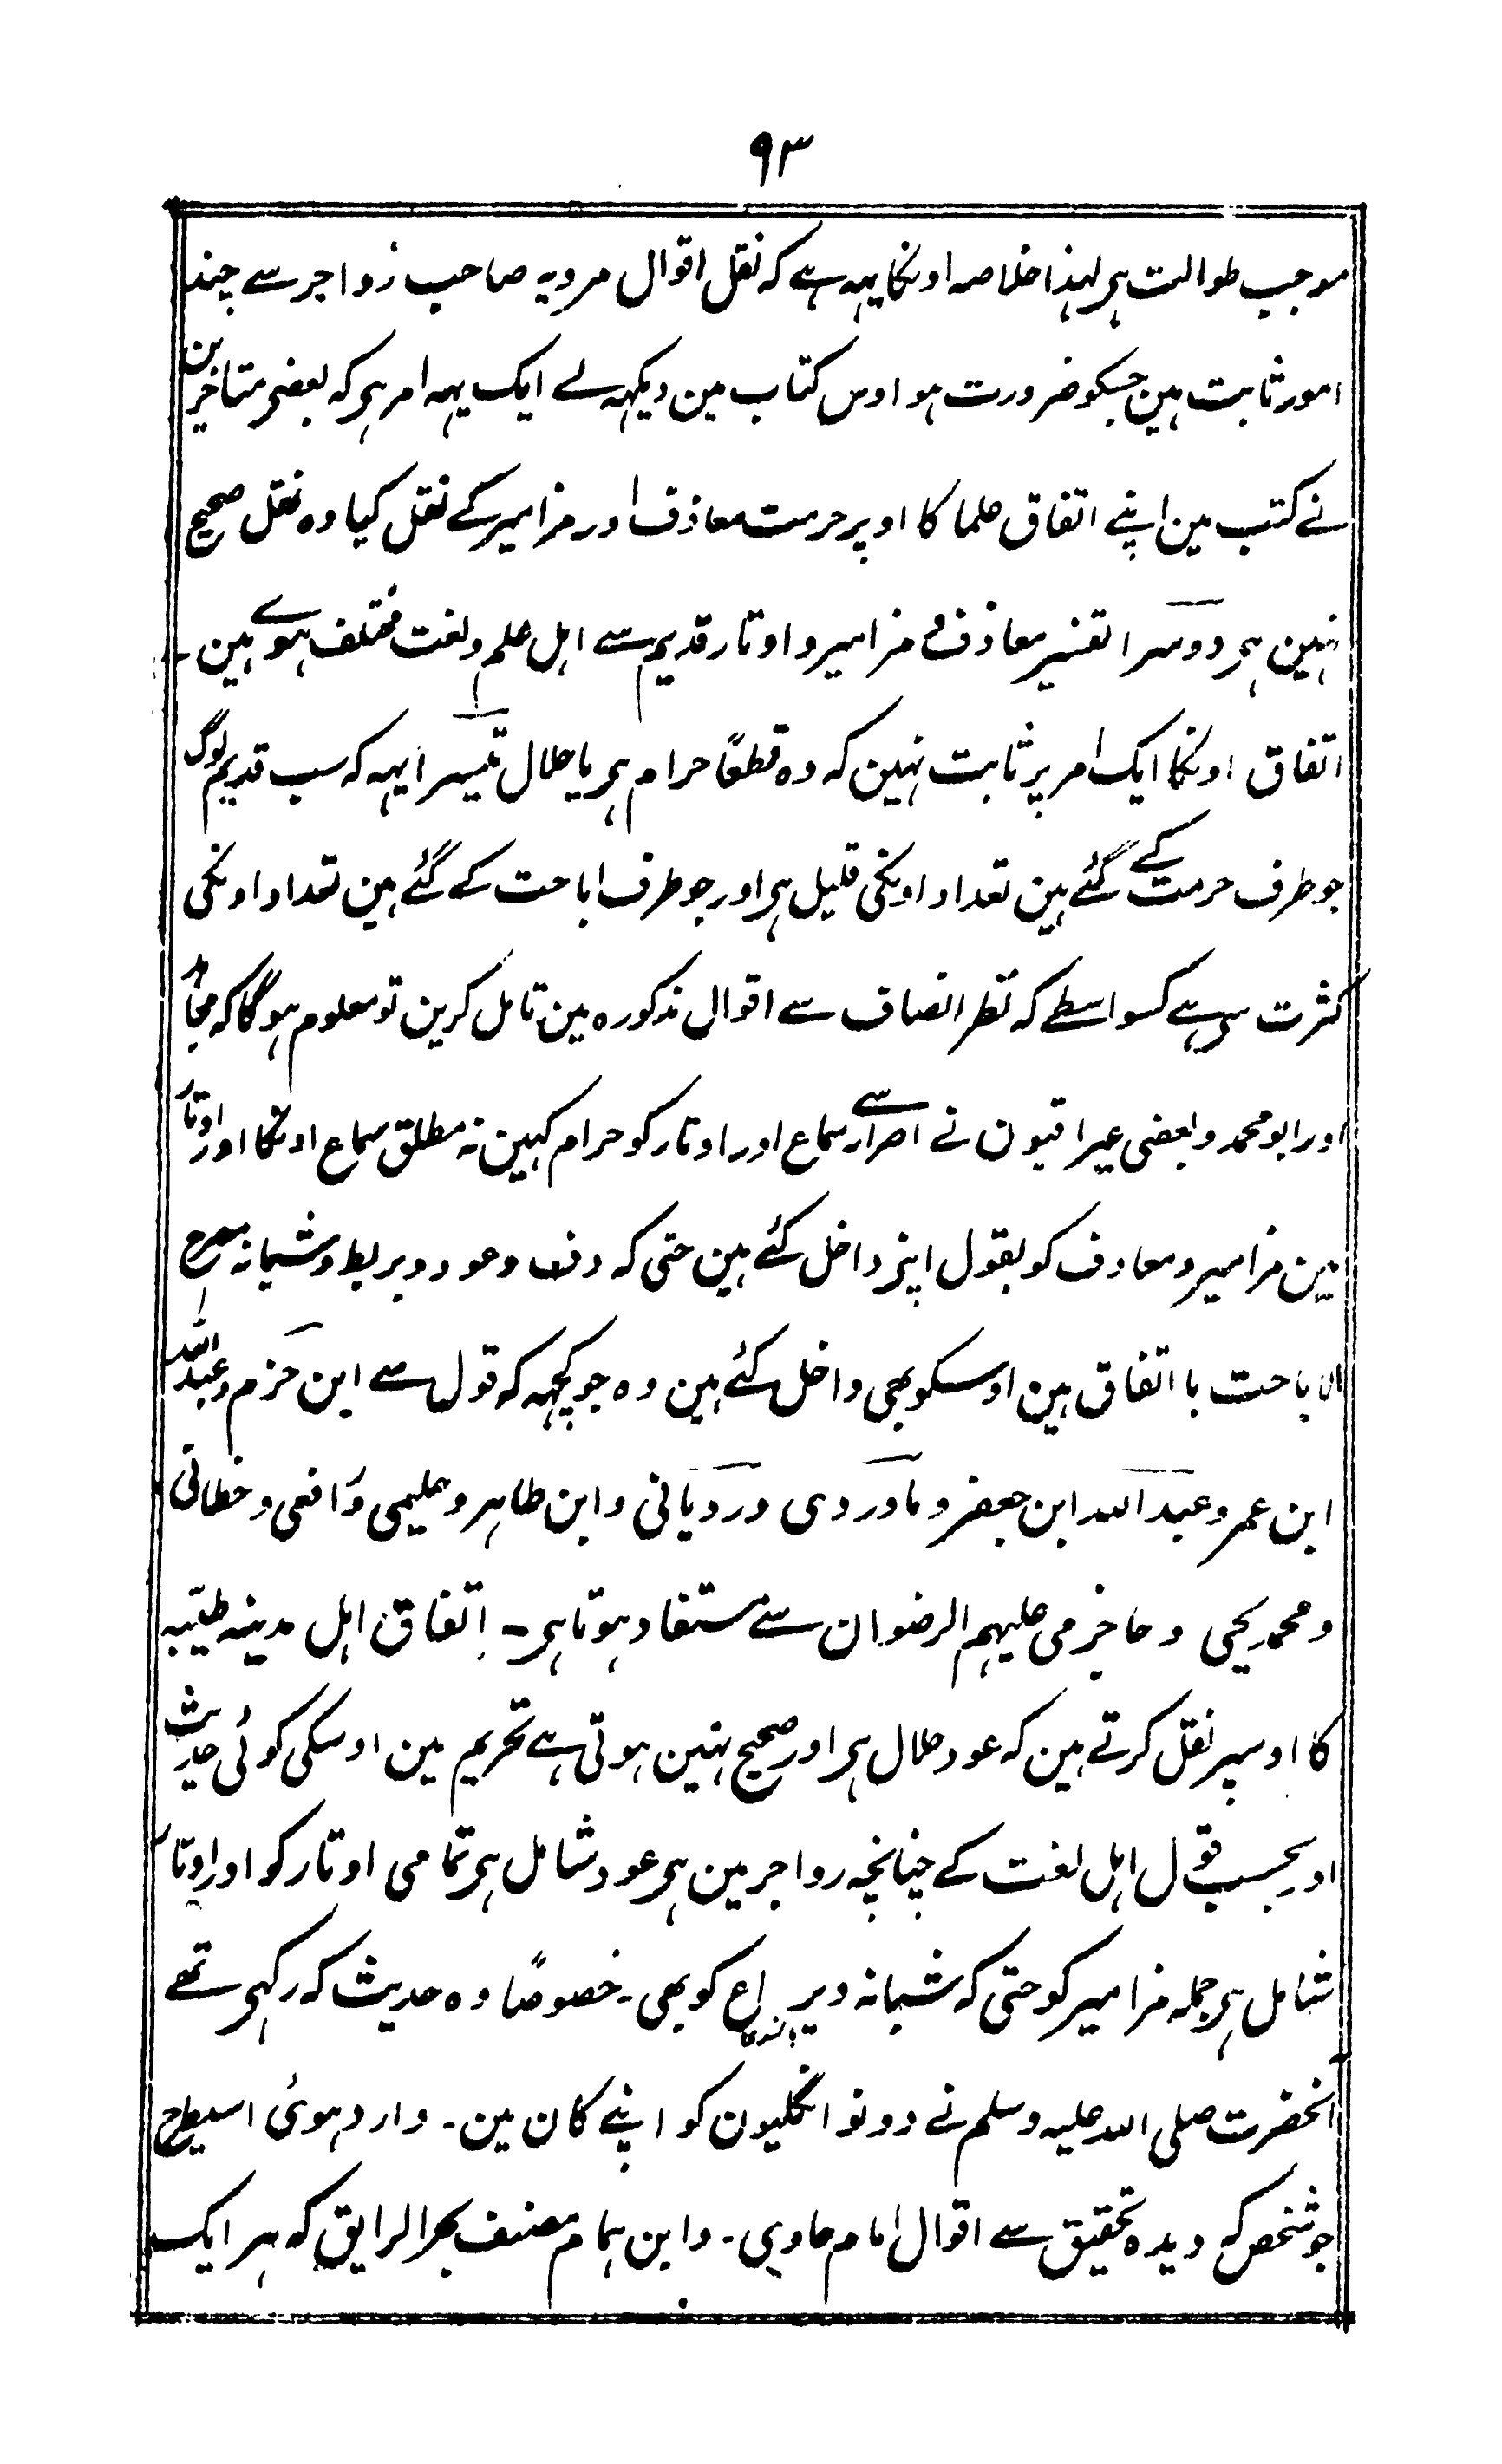 ۹۳
موجب طوالت ہی لہذا خلاصہ اونکا یہہ ہے کہ نقل اقوال مرویہ صاحب زواجر سے چند
امور ثابت ہین جسکو ضرورت ہو اوس کتاب مین دیکہہ لے ایک یہہ امر ہی کہ بعضی متاخرین
نے کتب مین اپنے اتفاق علما کا اوپر حرمت معاذف اور مزامیر کے نقل کیا وہ نقل صحیح
نہین ہی دوسرا تفسیر معاذف و مزامیر و اوتار قدیم سے اہل علم و لغت مختلف ہوے ہین ۔
اتفاق اونکا ایک امر پر ثابت نہین کہ وہ قطعًا حرام ہی یا حلال تیسرا یہہ کہ سب قدیم لوگ
جو طرف حرمت کے گئے ہین تعداد اونکی قلیل ہی اور جو طرف اباحت کے گئے ہین تعداد اونکی
کثرت سی ہے کسواسطے کہ نظر انصاف سے اقوال مذکورہ مین تامل کرین تو معلوم ہوگا کہ
اور ابو محمد و بعضی عیراقیون نے اصرار سے سماع اور اوتار کو حرام کہین نہ مطلق سماع اونکا اور اوتار
مین مزامیر و معارف کو بقول اپنی داخل کئے ہین حتی کہ دف و عود و بربط و شبانہ
الاباحت با اتفاق ہین اوسکو بھی داخل کئے ہین وہ جو کچہہ کہ قول سے ابن حزم و عبد اللہ
ابن عمر و عبد اللہ ابن جعفر و ماوردی و رویانی و ابن طاہر و حلیمی و رافعی و خطابی
و محمد یحیی و حاجرمی علیہم الرضوان سے مستفاد ہوتا ہی ۔ اتفاق اہل مدینہ طیّبہ
کا اوسپر نقل کرتے ہین کہ عود حلال ہی اور صحیح نہین ہوتی ہے تحریم مین اوسکی کوئی حدیث
اور بحسب قول اہل لغت کے چنانچہ رواجر مین ہی عود شامل ہی تمامی اوتار کو اور اوتار
شامل ہی جملہ مزامیر کو حتی کہ شبانہ و یراع کو بھی ۔ خصوصًا وہ حدیث کہ رکہی تھے
آنحضرت صلی اللہ علیہ وسلم نے دونو انگلیون کو اپنے کان مین ۔ وارد ہوئی اسیطرح
جو شخص کہ دیدہ تحقیق سے اقوال امام حاوی ۔ و ابن ہمام مصنف بحر الرایق کہ ہر ایک